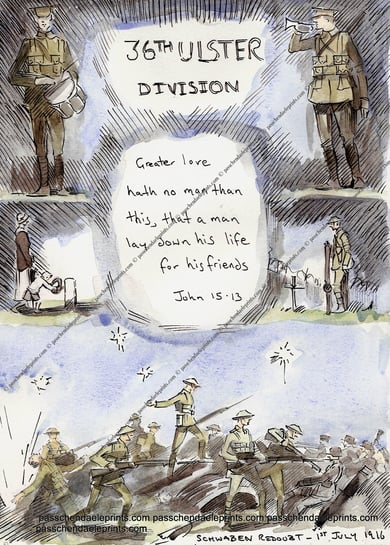 36TH ULSTER
DIVISION
Greater love
hath no man than
this, that a man
lay down his life
for his friends
John 15-13
passchendaeleprints.com passchendaeleprints.com passchendaeleprints.com
SCHWABEN REDOUBT - 1ST JULY 1916